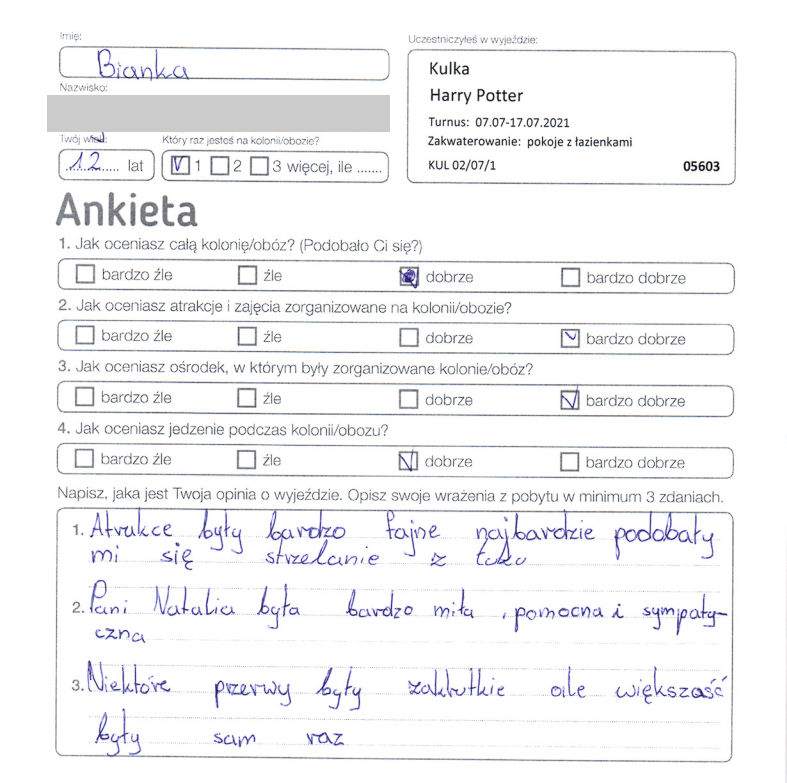 Imię:
Bianka
Nazwisko:
Twój wiek:
12 lat
Który raz jesteś na kolonii/obozie?
1 2 3 więcej, ile .......
Uczestniczyłeś w wyjeździe:
Kulka
Harry Potter
Turnus: 07.07-17.07.2021
Zakwaterowanie: pokoje z łazienkami
KUL 02/07/1 05603
Ankieta
1. Jak oceniasz całą kolonię/obóz? (Podobało Ci się?)
bardzo źle źle dobrze bardzo dobrze
2. Jak oceniasz atrakcje i zajęcia zorganizowane na kolonii/obozie?
bardzo źle źle dobrze bardzo dobrze
3. Jak oceniasz ośrodek, w którym były zorganizowane kolonie/obóz?
bardzo źle źle dobrze bardzo dobrze
4. Jak oceniasz jedzenie podczas kolonii/obozu?
bardzo źle źle dobrze bardzo dobrze
Napisz, jaka jest Twoja opinia o wyjeździe. Opisz swoje wrażenia z pobytu w minimum 3 zdaniach.
1. Atrakce były bardzo fajne najbardzie podobały
mi się strzelanie z
2. Pani Natalia była bardzo miła , pomocna i sympaty-
czna
3. Niektóre przerwy były zakrutkie ale większość
były sam raz